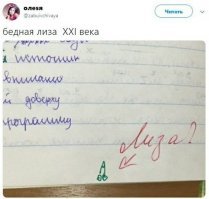 олеся
@zabuivchivaya
Читать
бедная лиза XXI века
источник
внимание
й доверху
программу
Лиза?